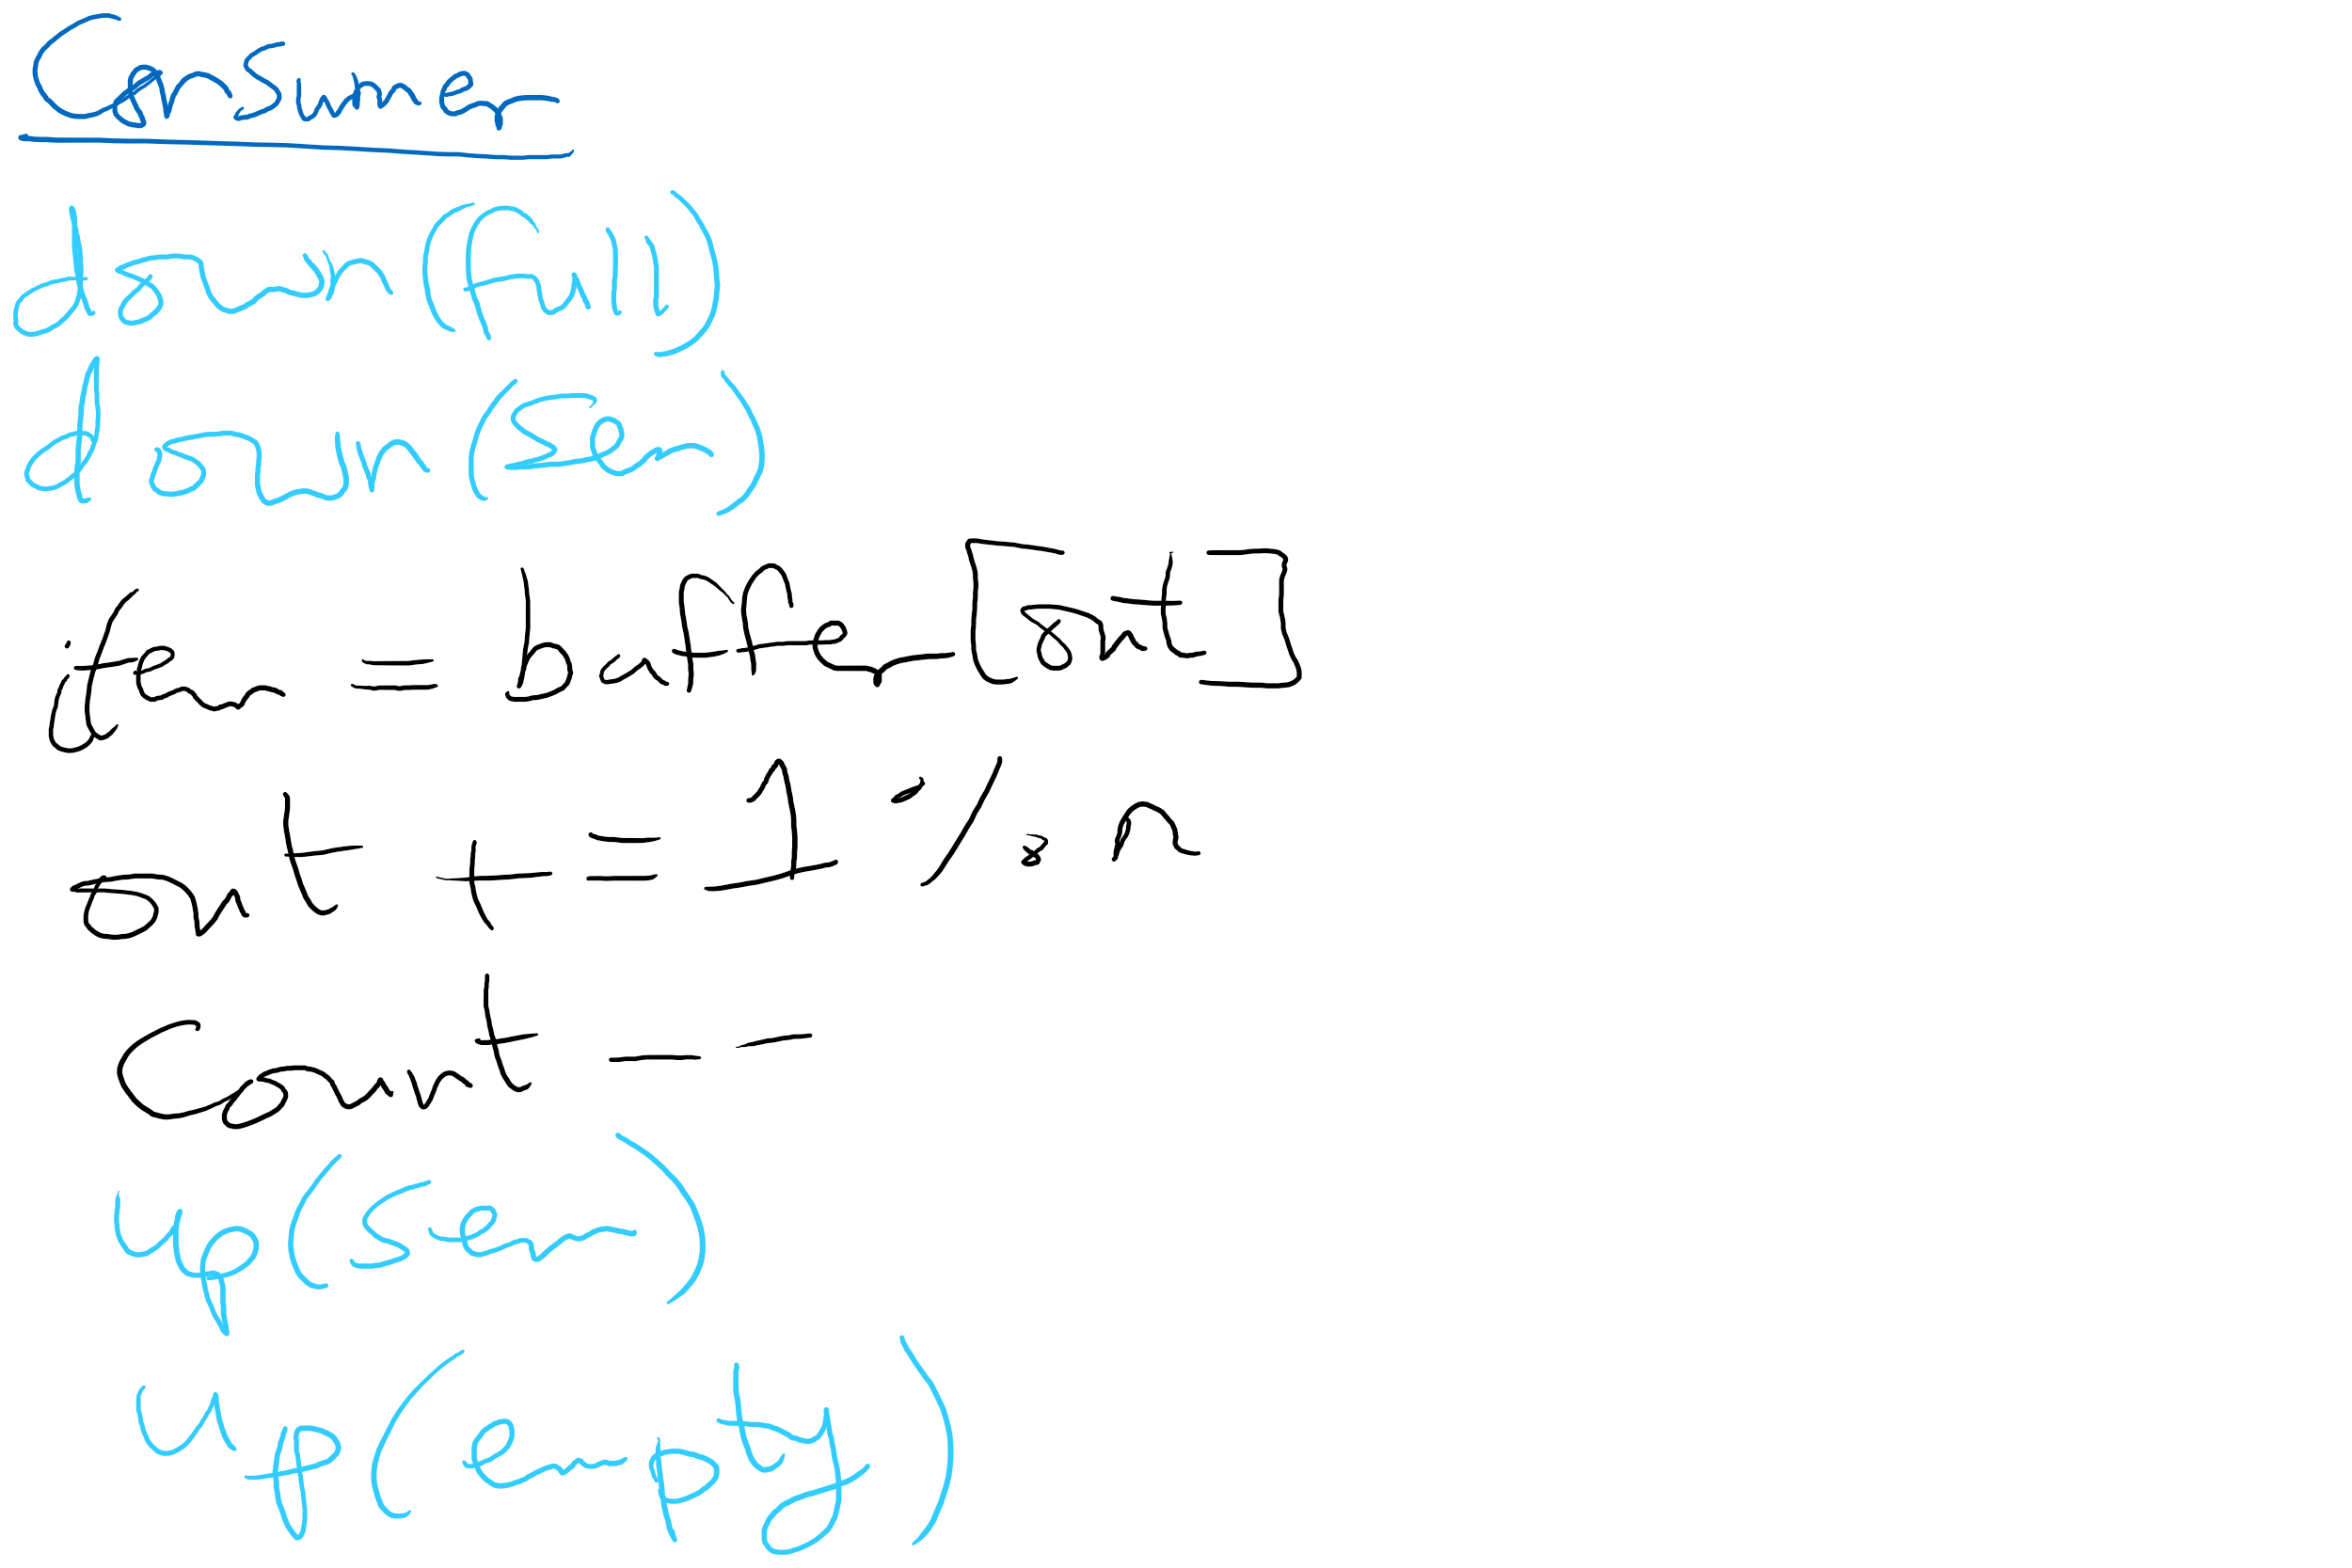 Consumer
down(full)
down(sem)
item = buffer[out]
out += 1 % n
Count --
up(sem)
up(empty)